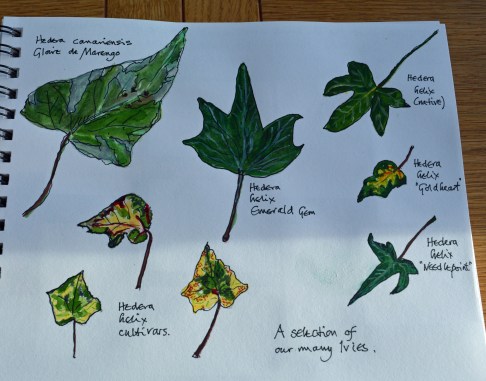 Hedera canariensis
Gloire de Marengo
Hedera
helix
(native)
Hedera
helix
Emerald Gem
Hedera
helix
"Goldheart"
Hedera
helix
"Needlepoint"
Hedera
helix
cultivars.
A selection of
our many Ivies.